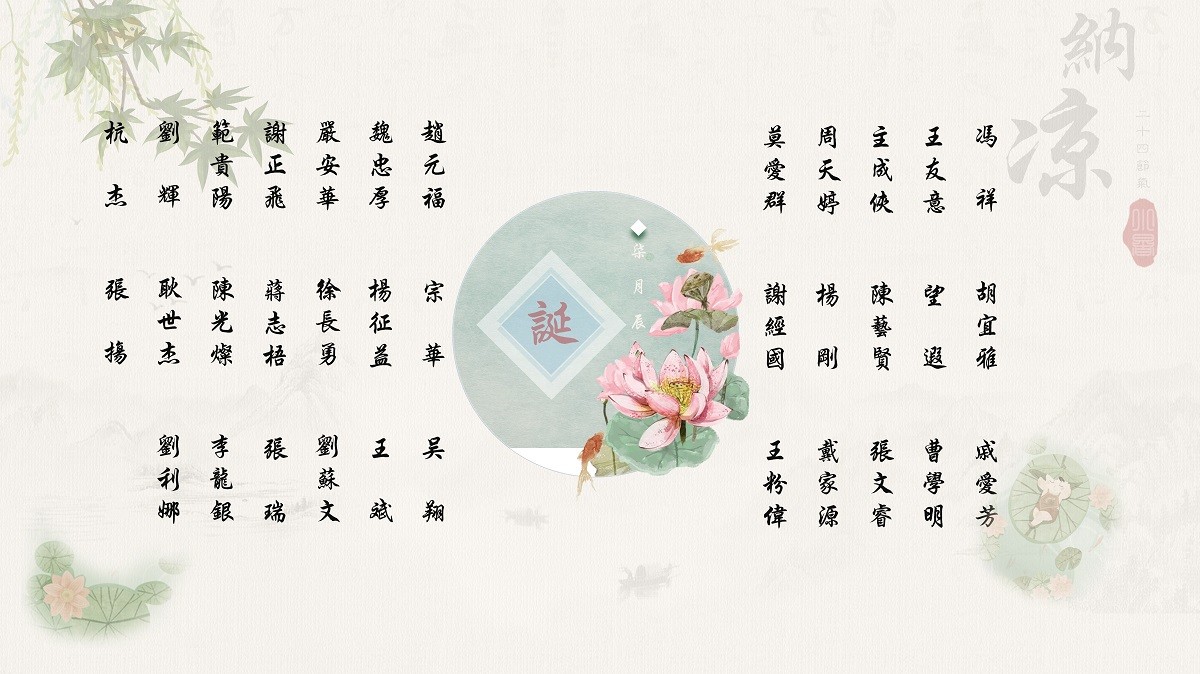 納
涼
二十四節氣
馮祥
王友意
主成俠
周天婷
莫愛群
胡宜雅
望遐
陳藝賢
楊剛
謝經國
戚愛芳
曹學明
張文睿
戴家源
王粉偉
柒月辰
誕
趙元福
魏忠厚
嚴安華
謝正飛
範貴陽
劉輝
杭杰
宗華
楊征益
徐長勇
蔣志梧
陳光燦
耿世杰
張揚
吴翔
王斌
劉蘇文
張瑞
李龍銀
劉利娜